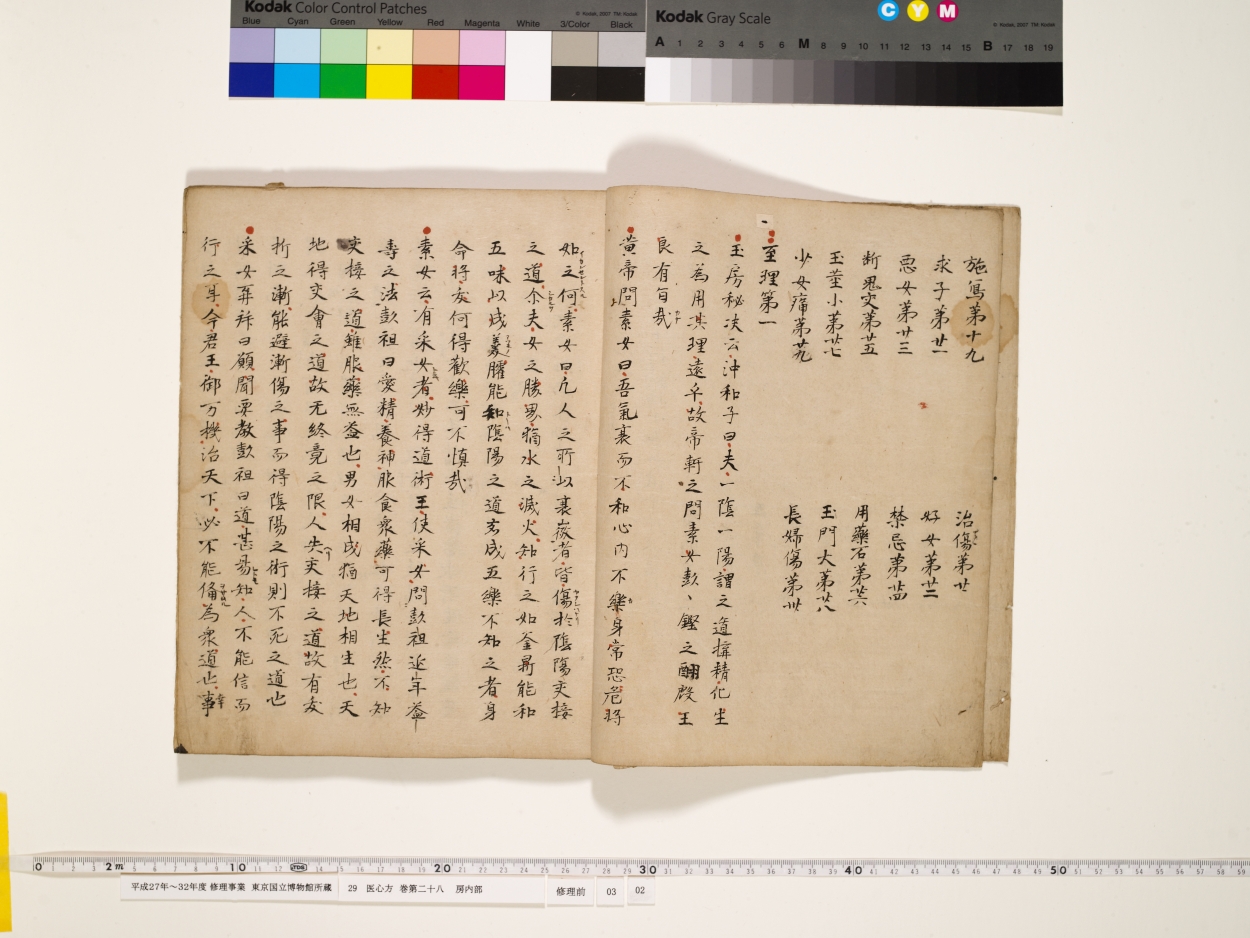 Kodak Color Control Patches
Blue Cyan Green Yellow Red Magenta White 3/Color Black
© Kodak, 2007 TM: Kodak
Kodak Gray Scale
C Y M
© Kodak, 2007 TM: Kodak
A 1 2 3 4 5 6 M 8 9 10 11 12 13 14 15 B 17 18 19
施寫第十九
治傷第廿
求子第廿一
好女第廿二
惡女第廿三
禁忌第廿四
断鬼交第廿五
用藥石第廿六
玉莖小第廿七
玉門大第廿八
少女痛第廿九
長婦傷第卅
至理第一
玉房秘决云沖和子曰夫一陰一陽謂之道搆精化生
之為用其理遠乎故帝軒之問素女彭、鏗之酬殷王
良有旨哉
黄帝問素女曰吾氣衰而不和心内不樂身常恐危將
如之何素女曰凡人之所以衰㣲者皆傷於陰陽交接
之道尓夫女之勝男猶水之滅火知行之如釜鼎能和
五味以成羹臛能知陰陽之道玄成五樂不知之者身
命将夭何得歡樂可不慎哉
素女云有采女者妙得道術王使采女問彭祖延年益
壽之法彭祖曰愛精養神服食衆藥可得長生然不知
交接之道雖服藥無益也男女相成猶天地相生也天
地得交會之道故无終竟之限人失交接之道故有夭
折之漸能避漸傷之事而得陰陽之術則不死之道也
采女再拜曰願聞要教彭祖曰道甚易知人不能信而
行之耳今君王御万機治天下必不能備為衆道也事
0 2m 10 20 30 40 50
平成27年～32年度 修理事業 東京国立博物館所蔵
29 医心方 巻第二十八 房内部
修理前
03
02